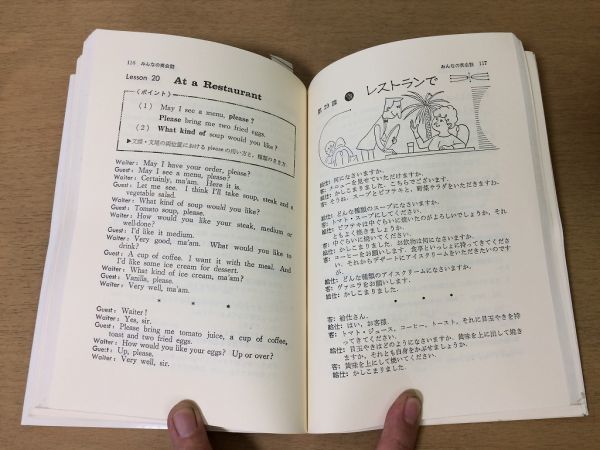 116 みんなの英会話
Lesson 20 At a Restaurant
〈ポイント〉
(1) May I see a menu, please?
Please bring me two fried eggs.
(2) What kind of soup would you like?
▶文頭・文尾の両位置における please の用い方と，種類のきき方
Waiter: May I have your order, please?
Guest: May I see a menu, please?
Waiter: Certainly, ma'am. Here it is.
Guest: Let me see. I think I'll take soup, steak and a
vegetable salad.
Waiter: What kind of soup would you like?
Guest: Tomato soup, please.
Waiter: How would you like your steak, medium or
well-done?
Guest: I'd like it medium.
Waiter: Very good, ma'am. What would you like to
drink?
Guest: A cup of coffee. I want it with the meal. And
I'd like some ice cream for dessert.
Waiter: What kind of ice cream, ma'am?
Guest: Vanilla, please.
Waiter: Very well, ma'am.
* * *
Guest: Waiter!
Waiter: Yes, sir.
Guest: Please bring me tomato juice, a cup of coffee,
toast and two fried eggs.
Waiter: How would you like your eggs? Up or over?
Guest: Up, please.
Waiter: Very well, sir.
みんなの英会話 117
第20課 レストランで
給仕: 何になさいますか。
客: メニューを見せていただけますか。
給仕: かしこまりました。こちらでございます。
客: そうね。スープとビフテキと，野菜サラダをいただきますわ。
給仕: どんな種類のスープになさいますか。
客: トマト・スープにしてください。
給仕: ビフテキは中ぐらいに焼いたのがよろしいでしょうか，それ
ともよく焼きましょうか。
客: 中ぐらいに焼いてください。
給仕: かしこまりました。お飲物は何になさいますか。
客: コーヒーをお願いします。食事といっしょに持ってきてくださ
い。それからデザートにアイスクリームをいただきたいのです
が。
給仕: どんな種類のアイスクリームになさいますか。
客: ヴァニラをお願いします。
給仕: かしこまりました。
* * *
客: 給仕さん。
給仕: はい，お客様。
客: トマト・ジュース，コーヒー，トースト，それに目玉やきを持
ってきてください。
給仕: 目玉やきはどのようになさいますか。黄味を上に出して焼き
ますか，それとも白身をかぶせましょうか。
客: 黄味を上にして焼いてください。
給仕: かしこまりました。